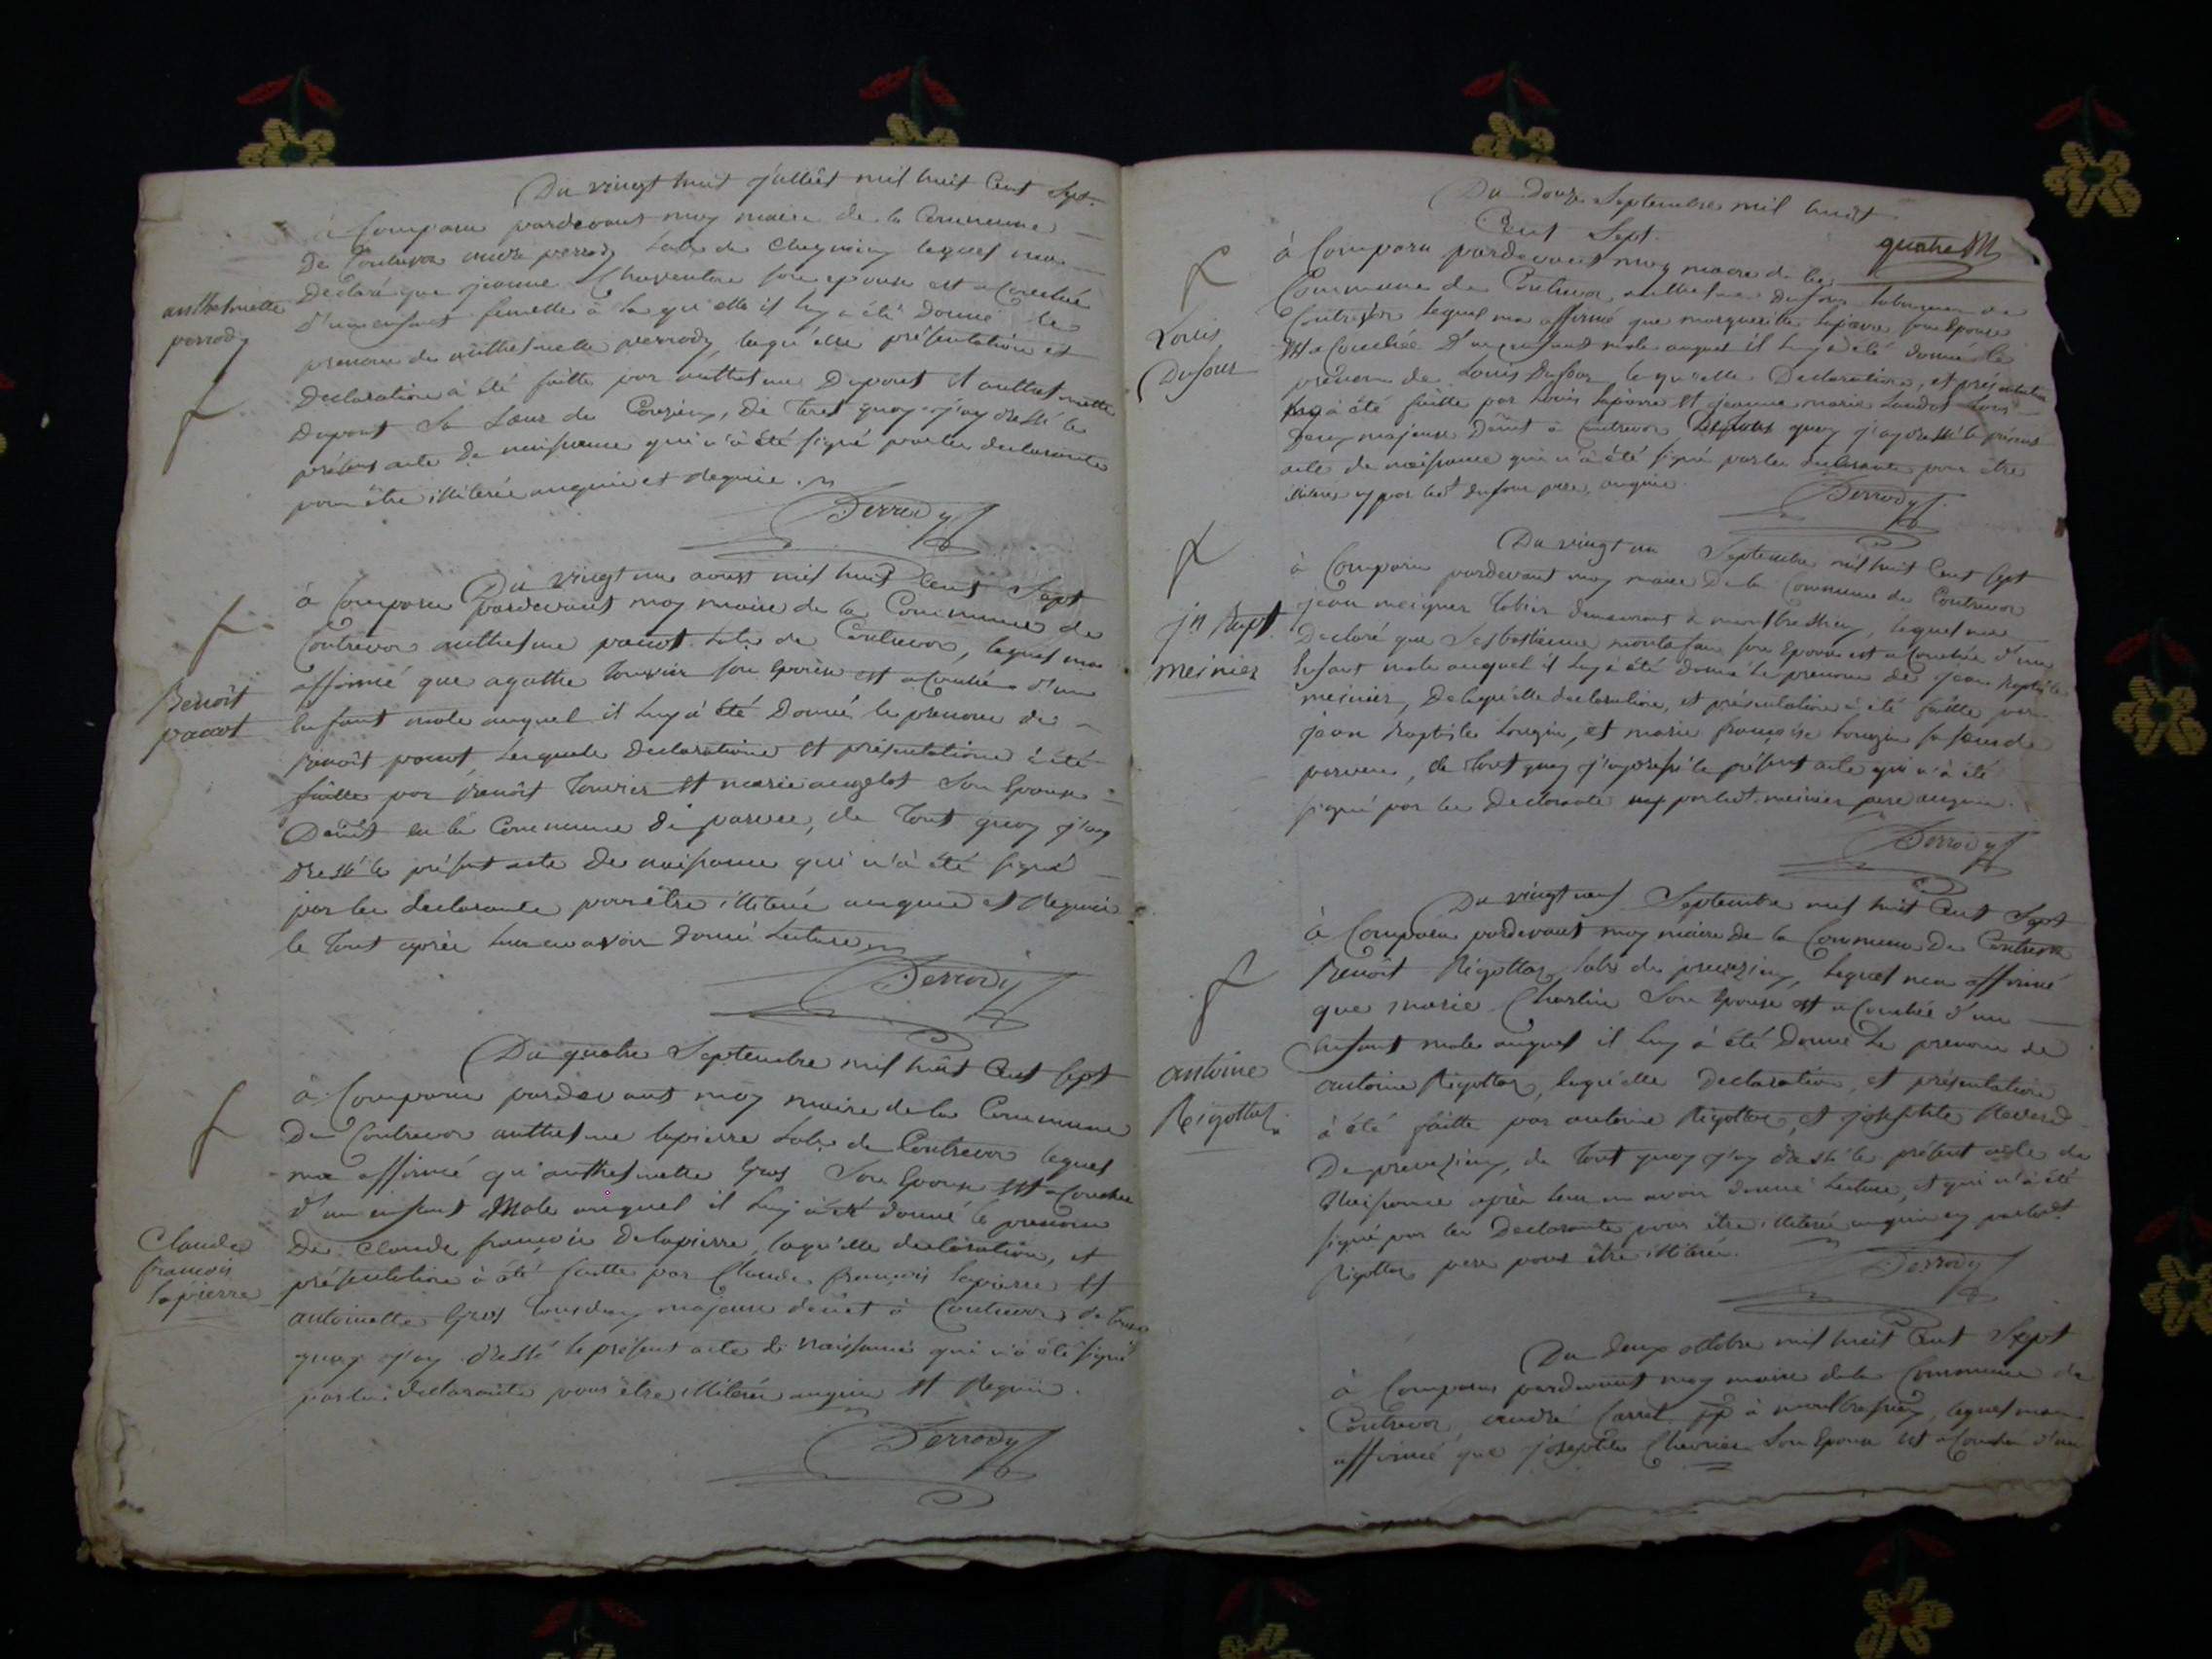 Du vingt huit juilliêt mil huit Cent Sept.
à Comparu pardevant moy maire de la Commune
De Contrevoz perrody Labr de Chegnieu lequel ma
Declaré que jeanne Charventon son epouse est acouchée
d'un enfant femelle à la qu'elle il luy à été Donné le
anthelmette
perrody
prenom de anthelmette perrody, laqu'elle présentation et
Declaration à été faitte par anthelme Dupont et anthelmette
Dupont Sa Sœur de Couzieu, de tout quoy j'ay dressé le
présent acte de naissance qui n'à été signé par les declarants
pour être illiterés enquis et requis.
Perrody
Du vingt un aoust mil huit Cent Sept
à Comparu pardevant moy maire de la Commune de
Contrevoz anthelme pacout Labr de Contrevoz, lequel ma
affirmé que agathe tournier son Epouse est acouchée d'un
Benoît
pacout
Enfant male auquel il luy à été Donné le prenom de
Benoît pacout Laquele Declaration et présentation à été
faitte par Benoît tournier et marie angelot Son Epouse
Demt en la Commune de parves, de tout quoy j'ay
dressé le présent acte de naissance qui n'à été signé
par les declarants pour être illiterés enquis et Requis
le tout après leur en avoir donné Lecture
Perrody
Du quatre Septembre mil huit Cent Sept
à Comparu pardevant moy maire de la Commune
De Contrevoz anthelme lapierre Labr de Contrevoz lequel
ma affirmé qu'anthelmette Gros Son Epouse est acouchée
d'un enfant Male auquel il luy à été donné le prenom
Claude
francois
lapierre
De Claude françois Delapierre, laqu'elle declaration, et
présentation à été faitte par Claude françois lapierre et
antoinette Gros tous deux majeurs demt à Contrevoz de tout
quoy j'ay dressé le présent acte de Naissance qui n'à été signé
par les declarants pour être illiterés enquis et Requis.
Perrody
Du Douze Septembre mil huit
Cent Sept.
quatre
à Comparu pardevant moy maire de la
Commune de Contrevoz anthelme Dufour laboureur de
Contrevoz lequel ma affirmé que marguerite lapierre son Epouse
Louis
Dufour
est acouchée D'un enfant male auquel il luy à été donné le
prenom de Louis Dufour laqu'elle Declaration, et présentation
à été faitte par Louis lapierre et jeanne marie Landot tous
deux majeurs demt à Contrevoz De tout quoy j'ay dressé le présent
acte de naissance qui n'à été signé par les declarants pour être
illiterés ny par ledt dufour pere, enquis.
Perrody
Du vingt un Septembre mil huit Cent Sept
à Comparu pardevant moy maire De la Commune de Contrevoz
jean meignier demeurant à montbressieu, lequel ma
jn Bapt.
meinier
Declaré que Sesbastienne montafan son Epouse est acouchée d'un
Enfant male auquel il luy à été donné le prenom de jean Baptiste
meinier, De laqu'elle declaration, et présentation à été faitte par
jean Baptiste Longin, et marie françoise Longin sa sœur de
parves, de tout quoy j'ay dressé le présent acte qui n'à été
signé par les Declarants ny par ledt meinier pere enquis.
Perrody
Du vingt neuf Septembre mil huit Cent Sept
à Comparu pardevant moy maire de la Commune De Contrevoz
Benoît Rigottaz Labr de preveyzieu, lequel ma affirmé
que marie Charlin Son Epouse est acouchée d'un
Enfant male auquel il luy à été Donné Le prenom de
antoine
Rigottaz
antoine Rigottaz, laqu'elle declaration, et présentation
à été faitte par antoine Rigottaz, et josephte Reverd
De preveyzieu, de tout quoy j'ay dressé le présent acte de
Naissance après leur en avoir donné Lecture, et qui n'à été
signé par les Declarants pour être illiterés enquis ny par ledt
Rigottaz pere pour être illiteré.
Perrody
Du deux octobre mil huit Cent Sept
à Comparu pardevant moy maire de la Commune de
Contrevoz andré Carrel à montbressieu, lequel ma
affirmé que josephte Chevrier Son Epouse est acouchée d'un